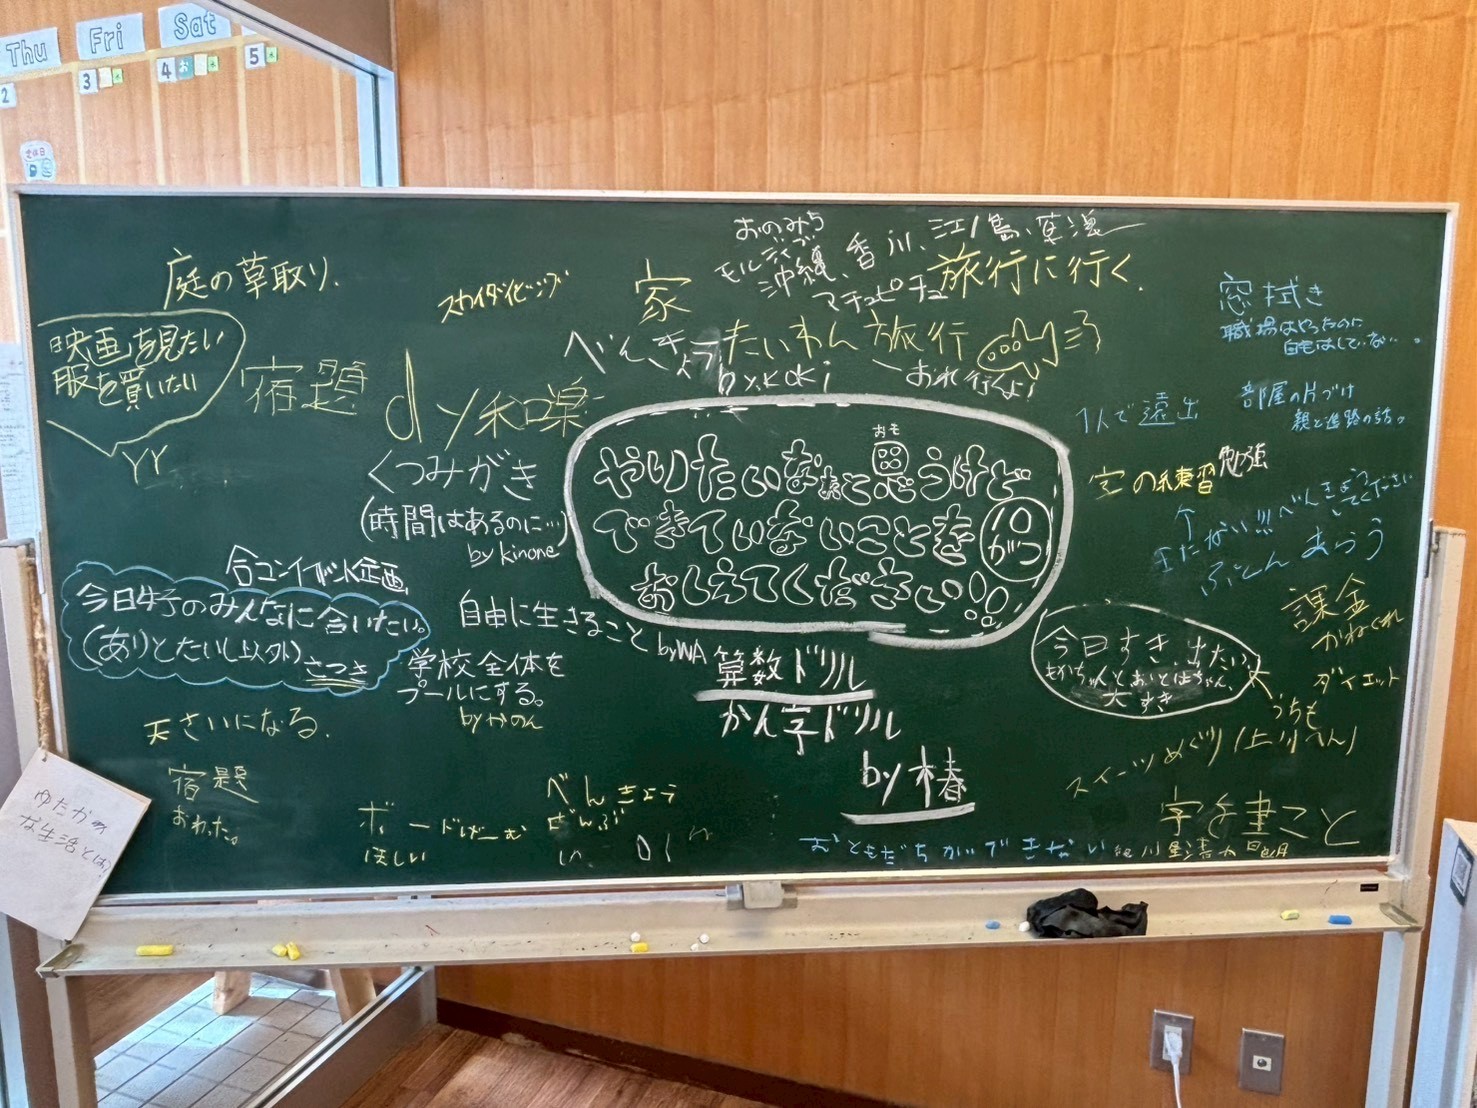 Thu
Fri
Sat
2
3
4
5
定休日
庭の草取り.
スカイダイビング
家
おのみち
モルディブ
沖縄、香川、江ノ島、草津
マチュピチュ
旅行に行く.
窓拭き
職場はやったのに
自宅はしていない…。
映画を見たい
服を買いたい
YY
宿題
べんきょう
by.KOKi
たいわん旅行
おれ行くよ!
dy和嘆
1人で遠出
部屋の片づけ
親と進路の話。
くつみがき
(時間はあるのに…)
by kinone
やりたいなぁと思うけど
オモ
できていないことを
10
がつ
おしえてください!!
字の練習
勉強
↑
まだない!!!べんきょうしてください
ふとんあらう
合コンイベント企画
今日牛子のみんなに会いたい。
(ありとたいし以外)
さつき
自由に生きること
by WA
学校全体を
プールにする。
by かのん
算数ドリル
かん字ドリル
by 椿
今日すき出たい。
もかちゃんとおとはちゃん
大すき
うちも
課金
かねくれ
ダイエット
スイーツめぐり(上川へん)
天さいになる.
宿題
おわった。
ボードげーむ
ほしい
べんきょう
ぜんぶ
字を書こと
おともだちができない
ゆたかな
な生活とは?